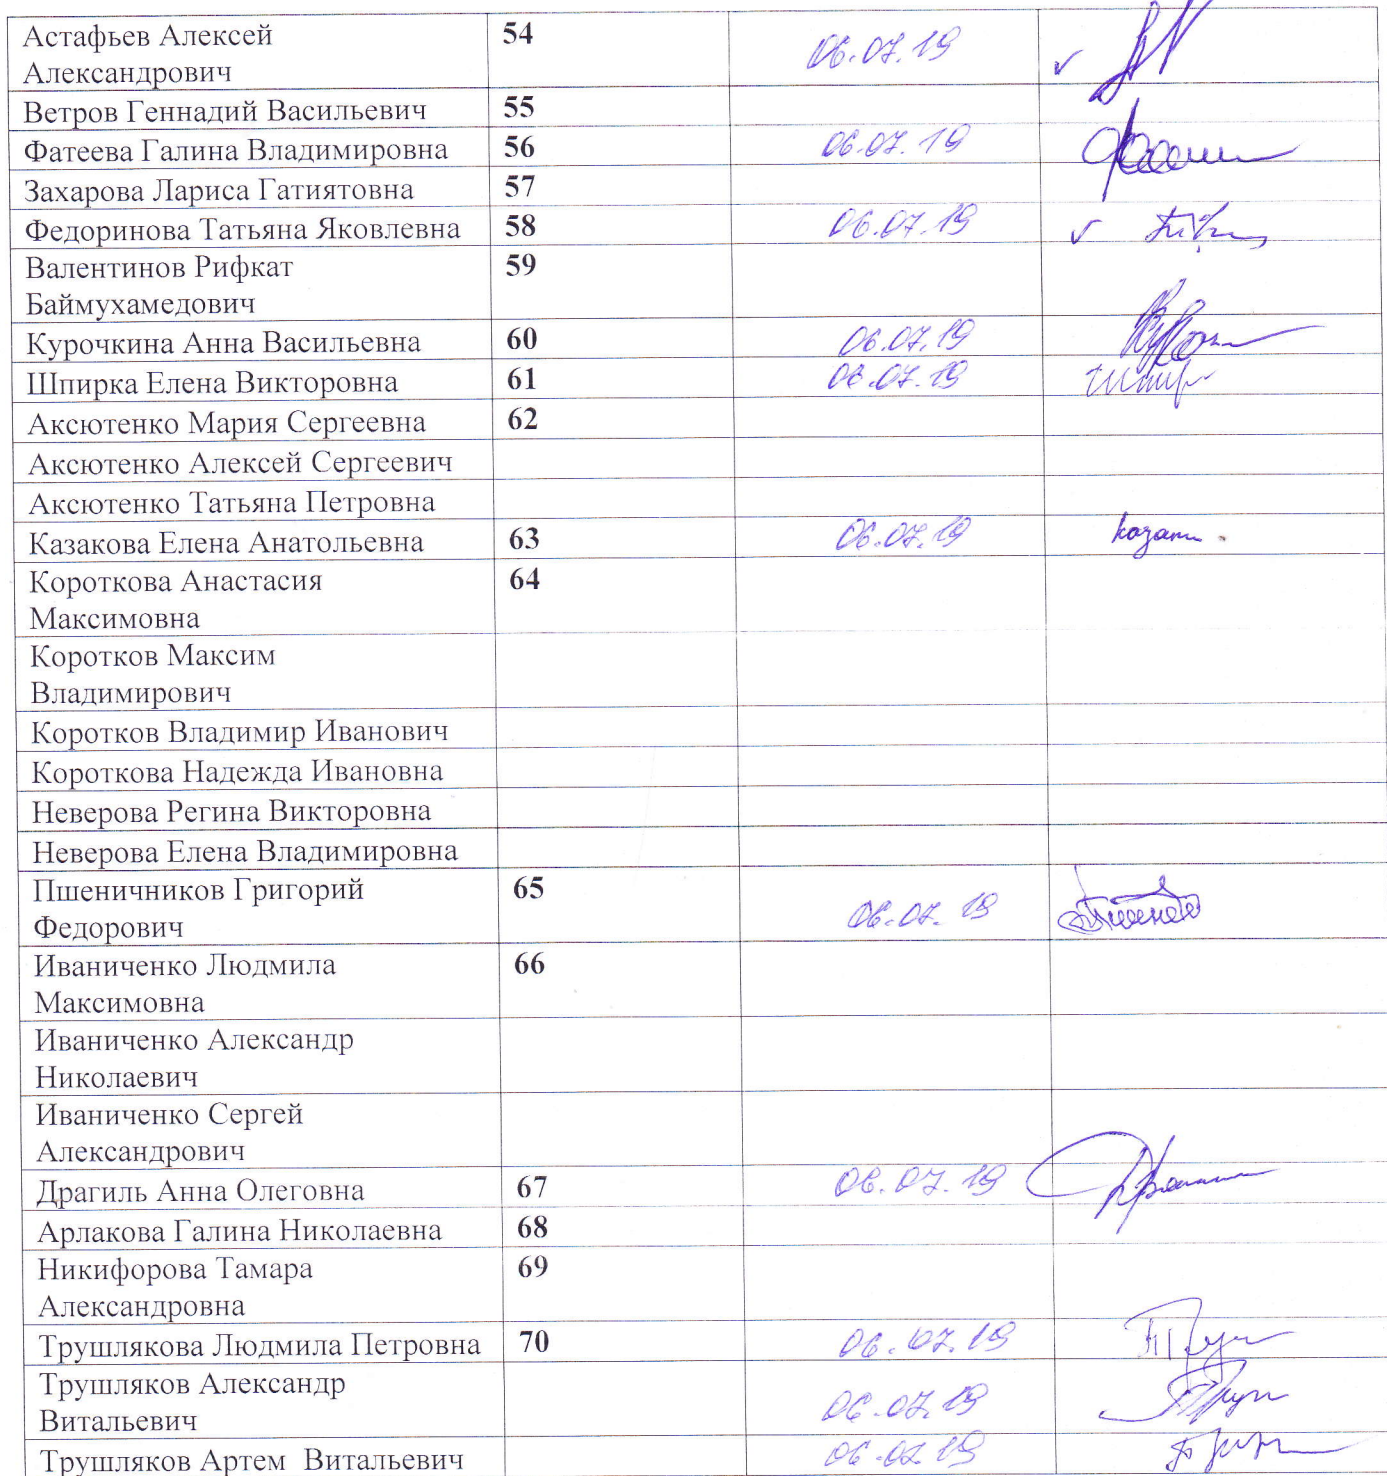 Астафьев Алексей 54 06.07.19
Александрович
Ветров Геннадий Васильевич 55
Фатеева Галина Владимировна 56 06.07.19
Захарова Лариса Гатиятовна 57
Федоринова Татьяна Яковлевна 58 06.07.19
Валентинов Рифкат 59
Баймухамедович
Курочкина Анна Васильевна 60 06.07.19
Шпирка Елена Викторовна 61 06.07.19
Аксютенко Мария Сергеевна 62
Аксютенко Алексей Сергеевич
Аксютенко Татьяна Петровна
Казакова Елена Анатольевна 63 06.07.19
Короткова Анастасия 64
Максимовна
Коротков Максим
Владимирович
Коротков Владимир Иванович
Короткова Надежда Ивановна
Неверова Регина Викторовна
Неверова Елена Владимировна
Пшеничников Григорий 65
Федорович 06.07.19
Иваниченко Людмила 66
Максимовна
Иваниченко Александр
Николаевич
Иваниченко Сергей
Александрович
Драгиль Анна Олеговна 67 06.07.19
Арлакова Галина Николаевна 68
Никифорова Тамара 69
Александровна
Трушлякова Людмила Петровна 70 06.07.19
Трушляков Александр
Витальевич 06.07.19
Трушляков Артем Витальевич 06.07.19